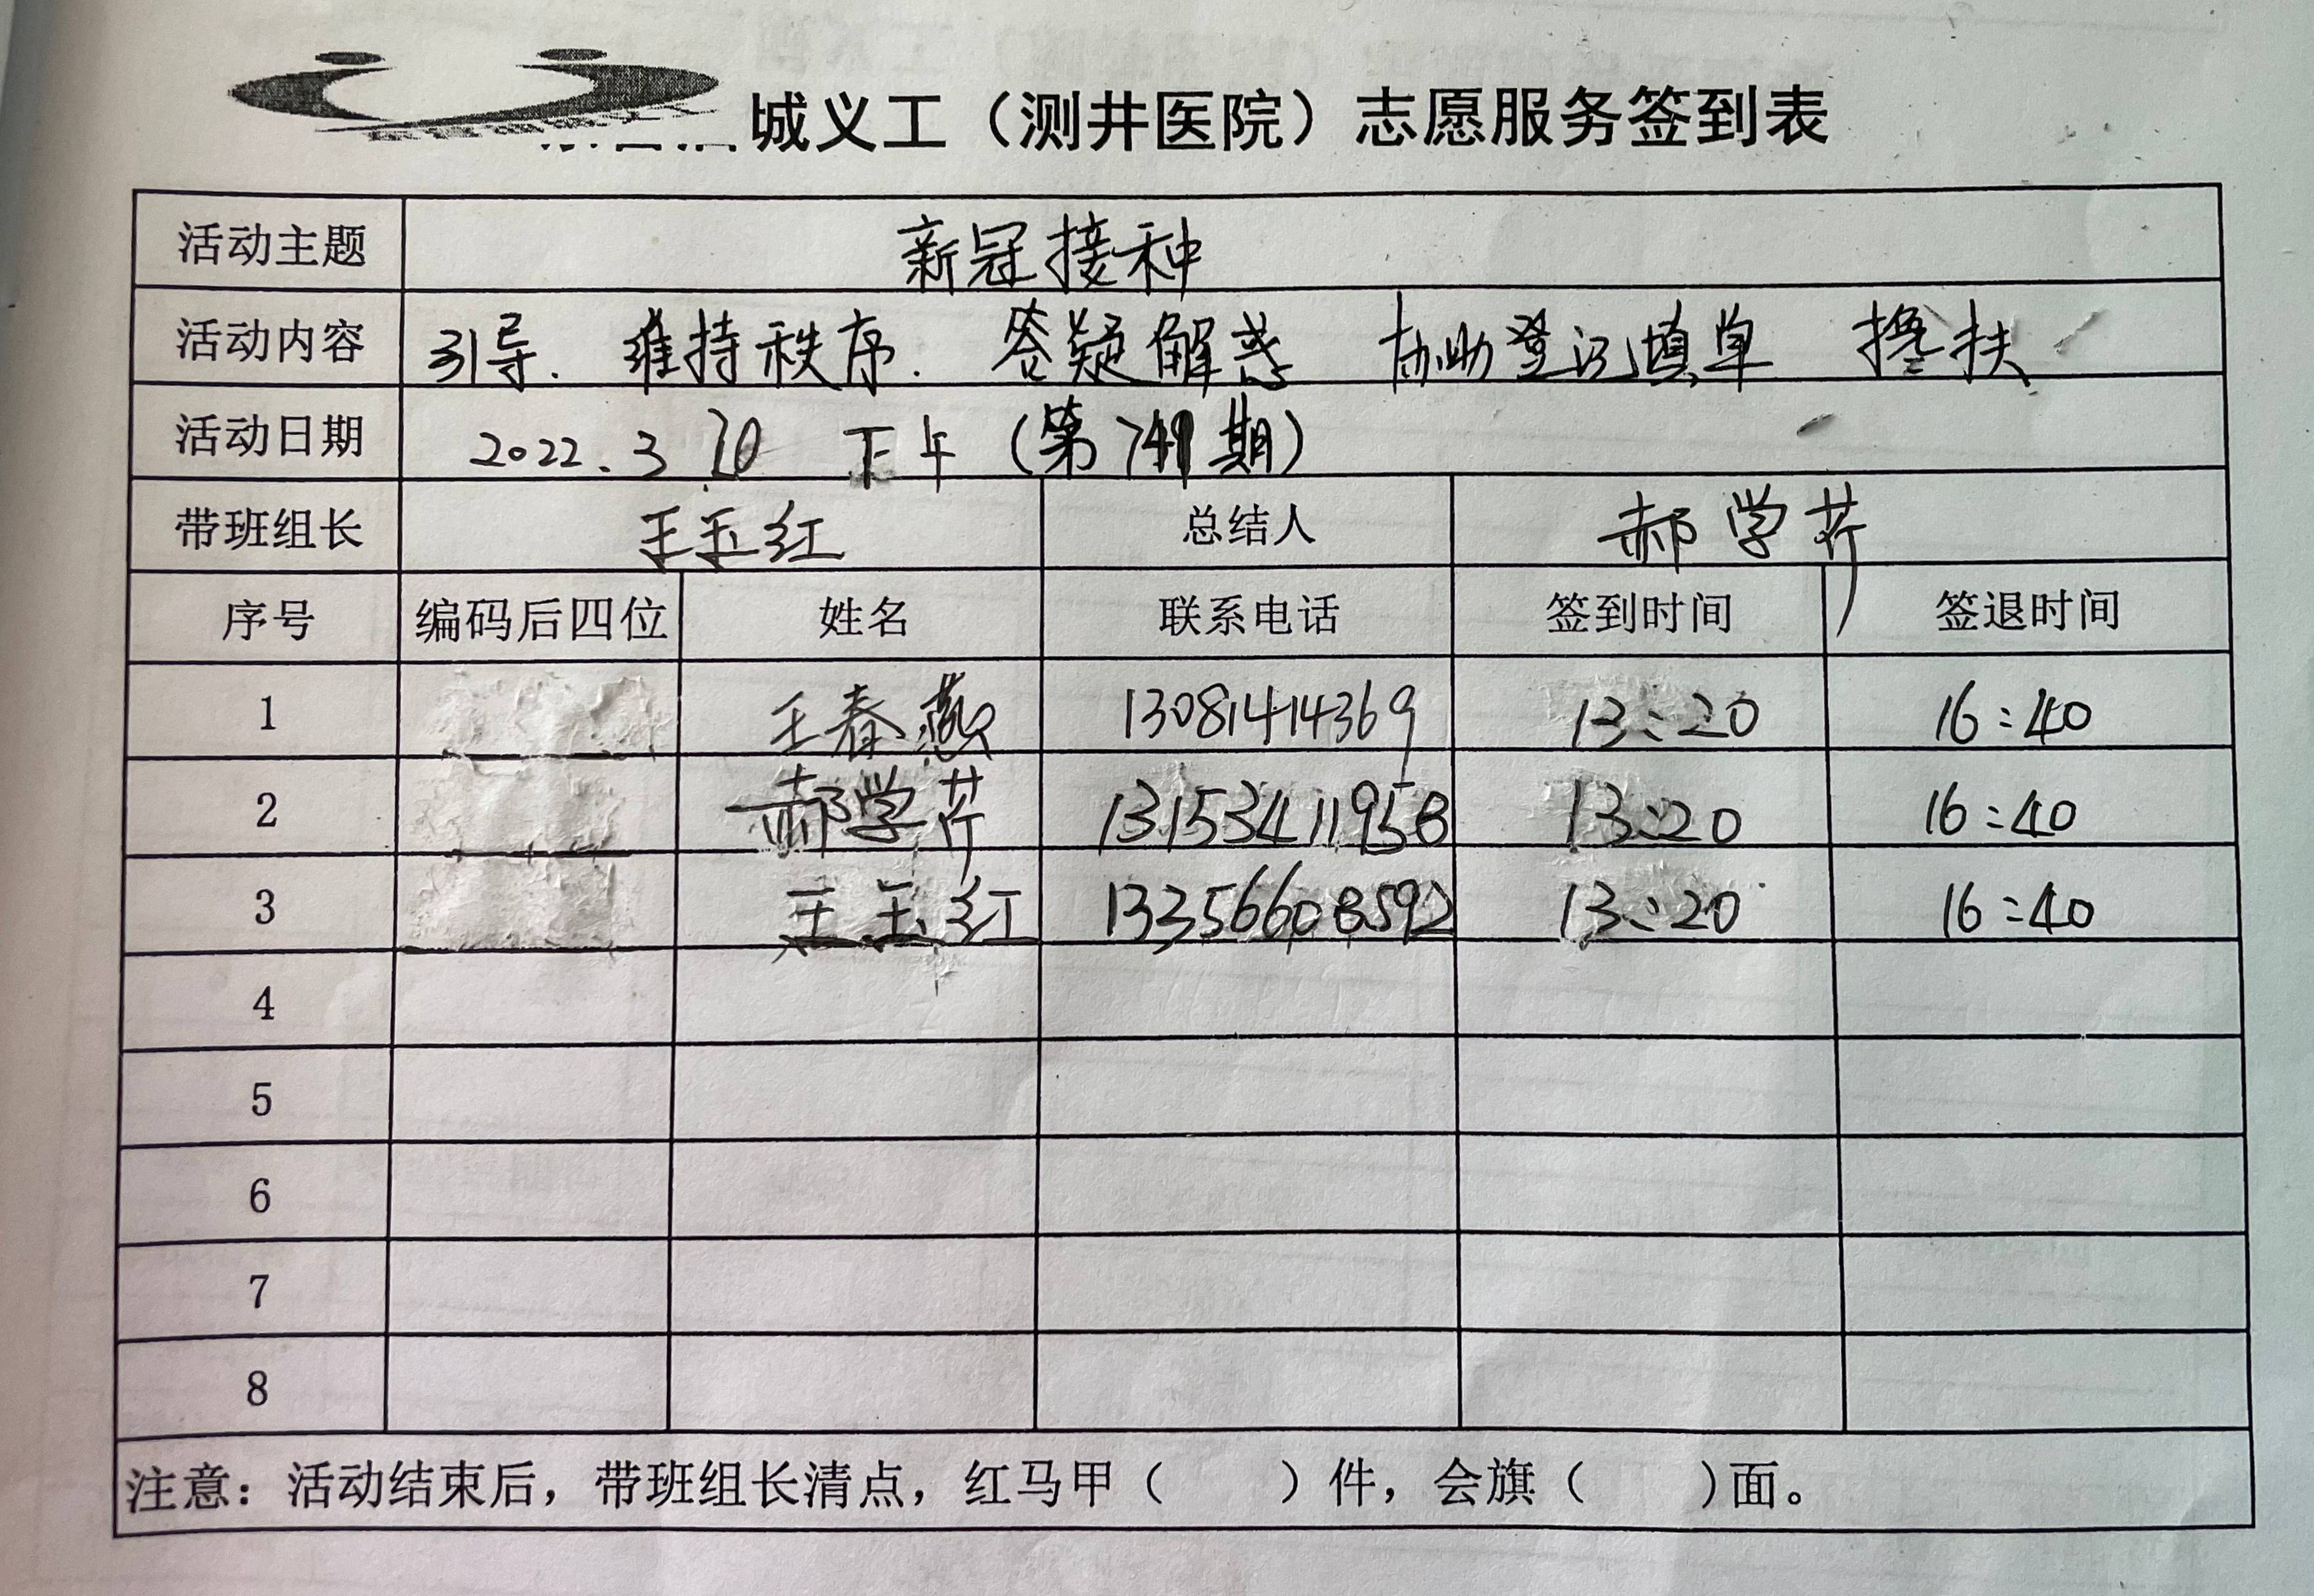 城义工（测井医院）志愿服务签到表
活动主题 新冠接种
活动内容 引导. 维持秩序. 答疑解惑 协助登记填单 搀扶
活动日期 2022.3.20 下午（第741期）
带班组长 王玉红 总结人 郝学芹
序号 编码后四位 姓名 联系电话 签到时间 签退时间
1 王春燕 13081414369 13:20 16:40
2 郝学芹 13153411958 13:20 16:40
3 王玉红 13356608592 13:20 16:40
4
5
6
7
8
注意：活动结束后，带班组长清点，红马甲（ ）件，会旗（ )面。